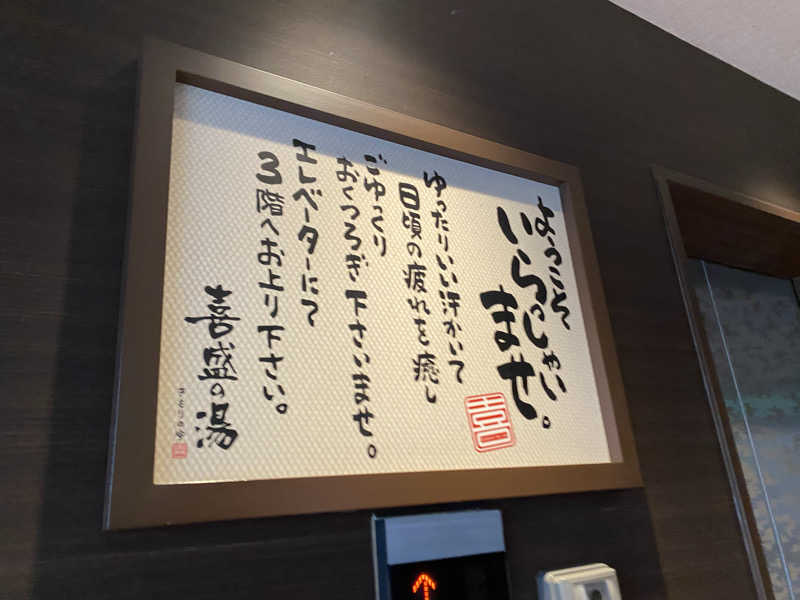 ようこそ
いらっしゃい
ませ。
喜
ゆったりいい汗かいて
日頃の疲れを癒し
ごゆっくり
おくつろぎ下さいませ。
エレベーターにて
3階へお上り下さい。
喜盛の湯